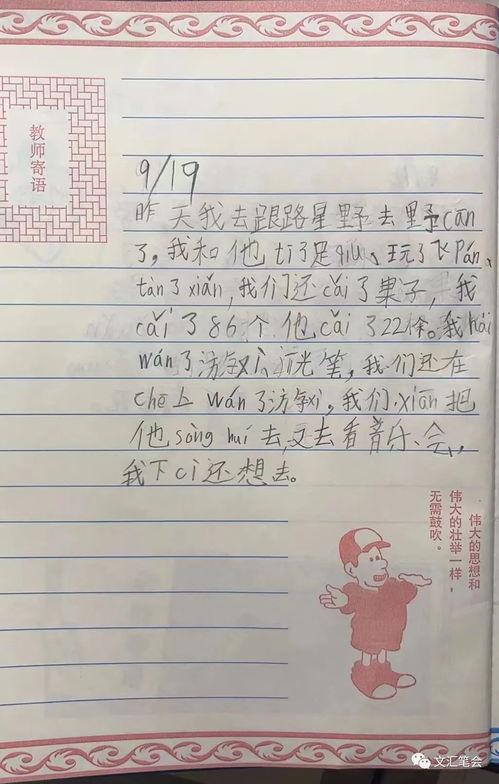 教师寄语
9/19
昨天我去跟路星野去野cān
了。我和他tī了足qiú、玩了飞Pán、
tàn了xiǎn,我们还cǎi了果子,我
cǎi了86个他cǎi了22个。我hái
wán了游戏、光笔,我们还在
chē上wán了游戏,我们xiān把
他sòng huí去,又去看音乐会,
我下cì还想去。
伟大的思想和
伟大的壮举一样,
无需鼓吹。
文汇笔会